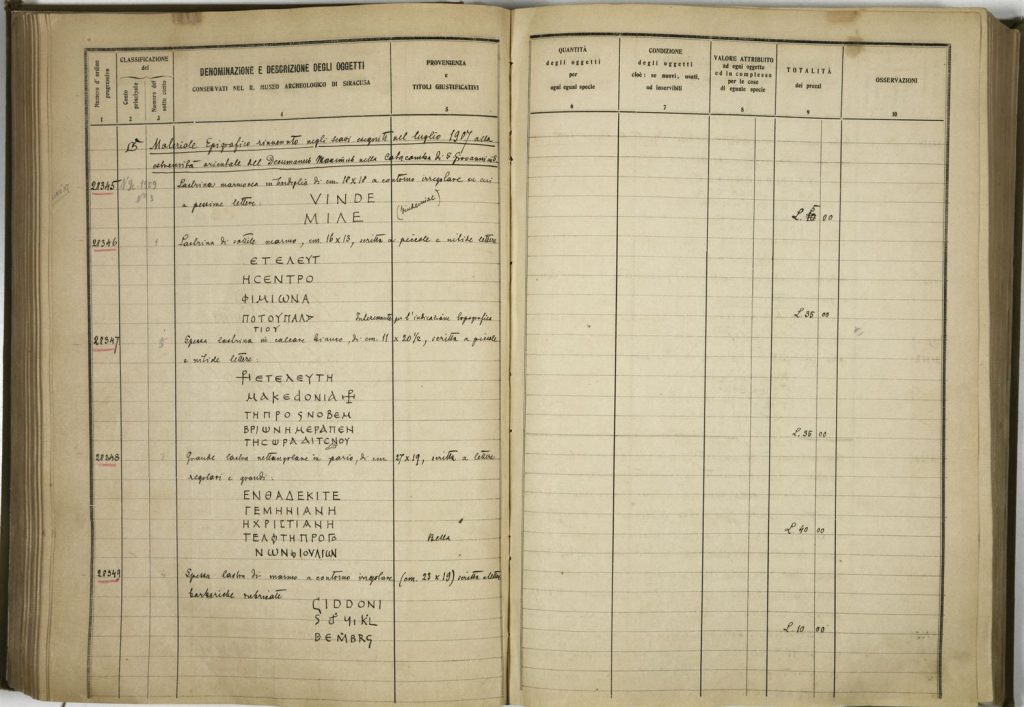 Numero d'ordine progressivo
CLASSIFICAZIONE
del
Conto principale
Numero del sotto conto
DENOMINAZIONE E DESCRIZIONE DEGLI OGGETTI
CONSERVATI NEL R. MUSEO ARCHEOLOGICO DI SIRACUSA
PROVENIENZA
e
TITOLI GIUSTIFICATIVI
1 2 3 4 5
Materiale Epigrafico rinvenuto negli scavi eseguiti nel luglio 1907 alla
estremità orientale del Decumanus Maximus nella Catacomba di S. Giovanni
28345 1909 Lastrina marmorea in bardiglio di cm. 18 x 18 a contorno irregolare su cui
a pessime lettere:
VINDE
ΜΙΛΕ
(Vindemiae)
28346 Lastrina di sottile marmo, cm. 16 x 13, scritta a piccole e nitide lettere
ΕΤΕΛΕΥΤ
ΗCΕΝΤΡΟ
ΦΙΜΙΩΝΑ
ΠΟΤΟΥΠΑΛΑ
ΤΙΟΥ
Interessante per l'indicazione topografica
28347 Spessa lastrina in calcare bianco, di cm. 11 x 20½, scritta a piccole
e nitide lettere:
ΕΤΕΛΕΥΤΗ
ΜΑΚΕDΟΝΙΑ
ΤΗΠΡΟSΝΟΒΕΜ
ΒΡΙΩΝΗΜΕΡΑΠΕΝ
ΤΗCΩΡΑΔΙΤCΝΟΥ
28348 Grande lastra rettangolare in pario, di cm 27 x 19, scritta a lettere
regolari e grandi:
ΕΝΘΑΔΕΚΙΤΕ
ΓΕΜΗΝΙΑΝΗ
ΗΧΡΙCΤΙΑΝΗ
ΤΕΛΕΤΗΠΡΟ
ΝΩΝΦΙΟΥΛΙΩΝ
Bella
28349 Spessa lastra di marmo a contorno irregolare (cm. 23 x 19) scritta a lettere
barbariche rubricate
DEMBRG
QUANTITÀ
degli oggetti
per
ogni egual specie
CONDIZIONE
degli oggetti
cioè: se nuovi, usati,
od inservibili
VALORE ATTRIBUITO
ad ogni oggetto
ed in complesso
per le cose
di eguale specie
TOTALITÀ
dei prezzi
OSSERVAZIONI
6 7 8 9 10
L. 00
L. 35 00
L. 35 00
L. 40 00
L. 10 00